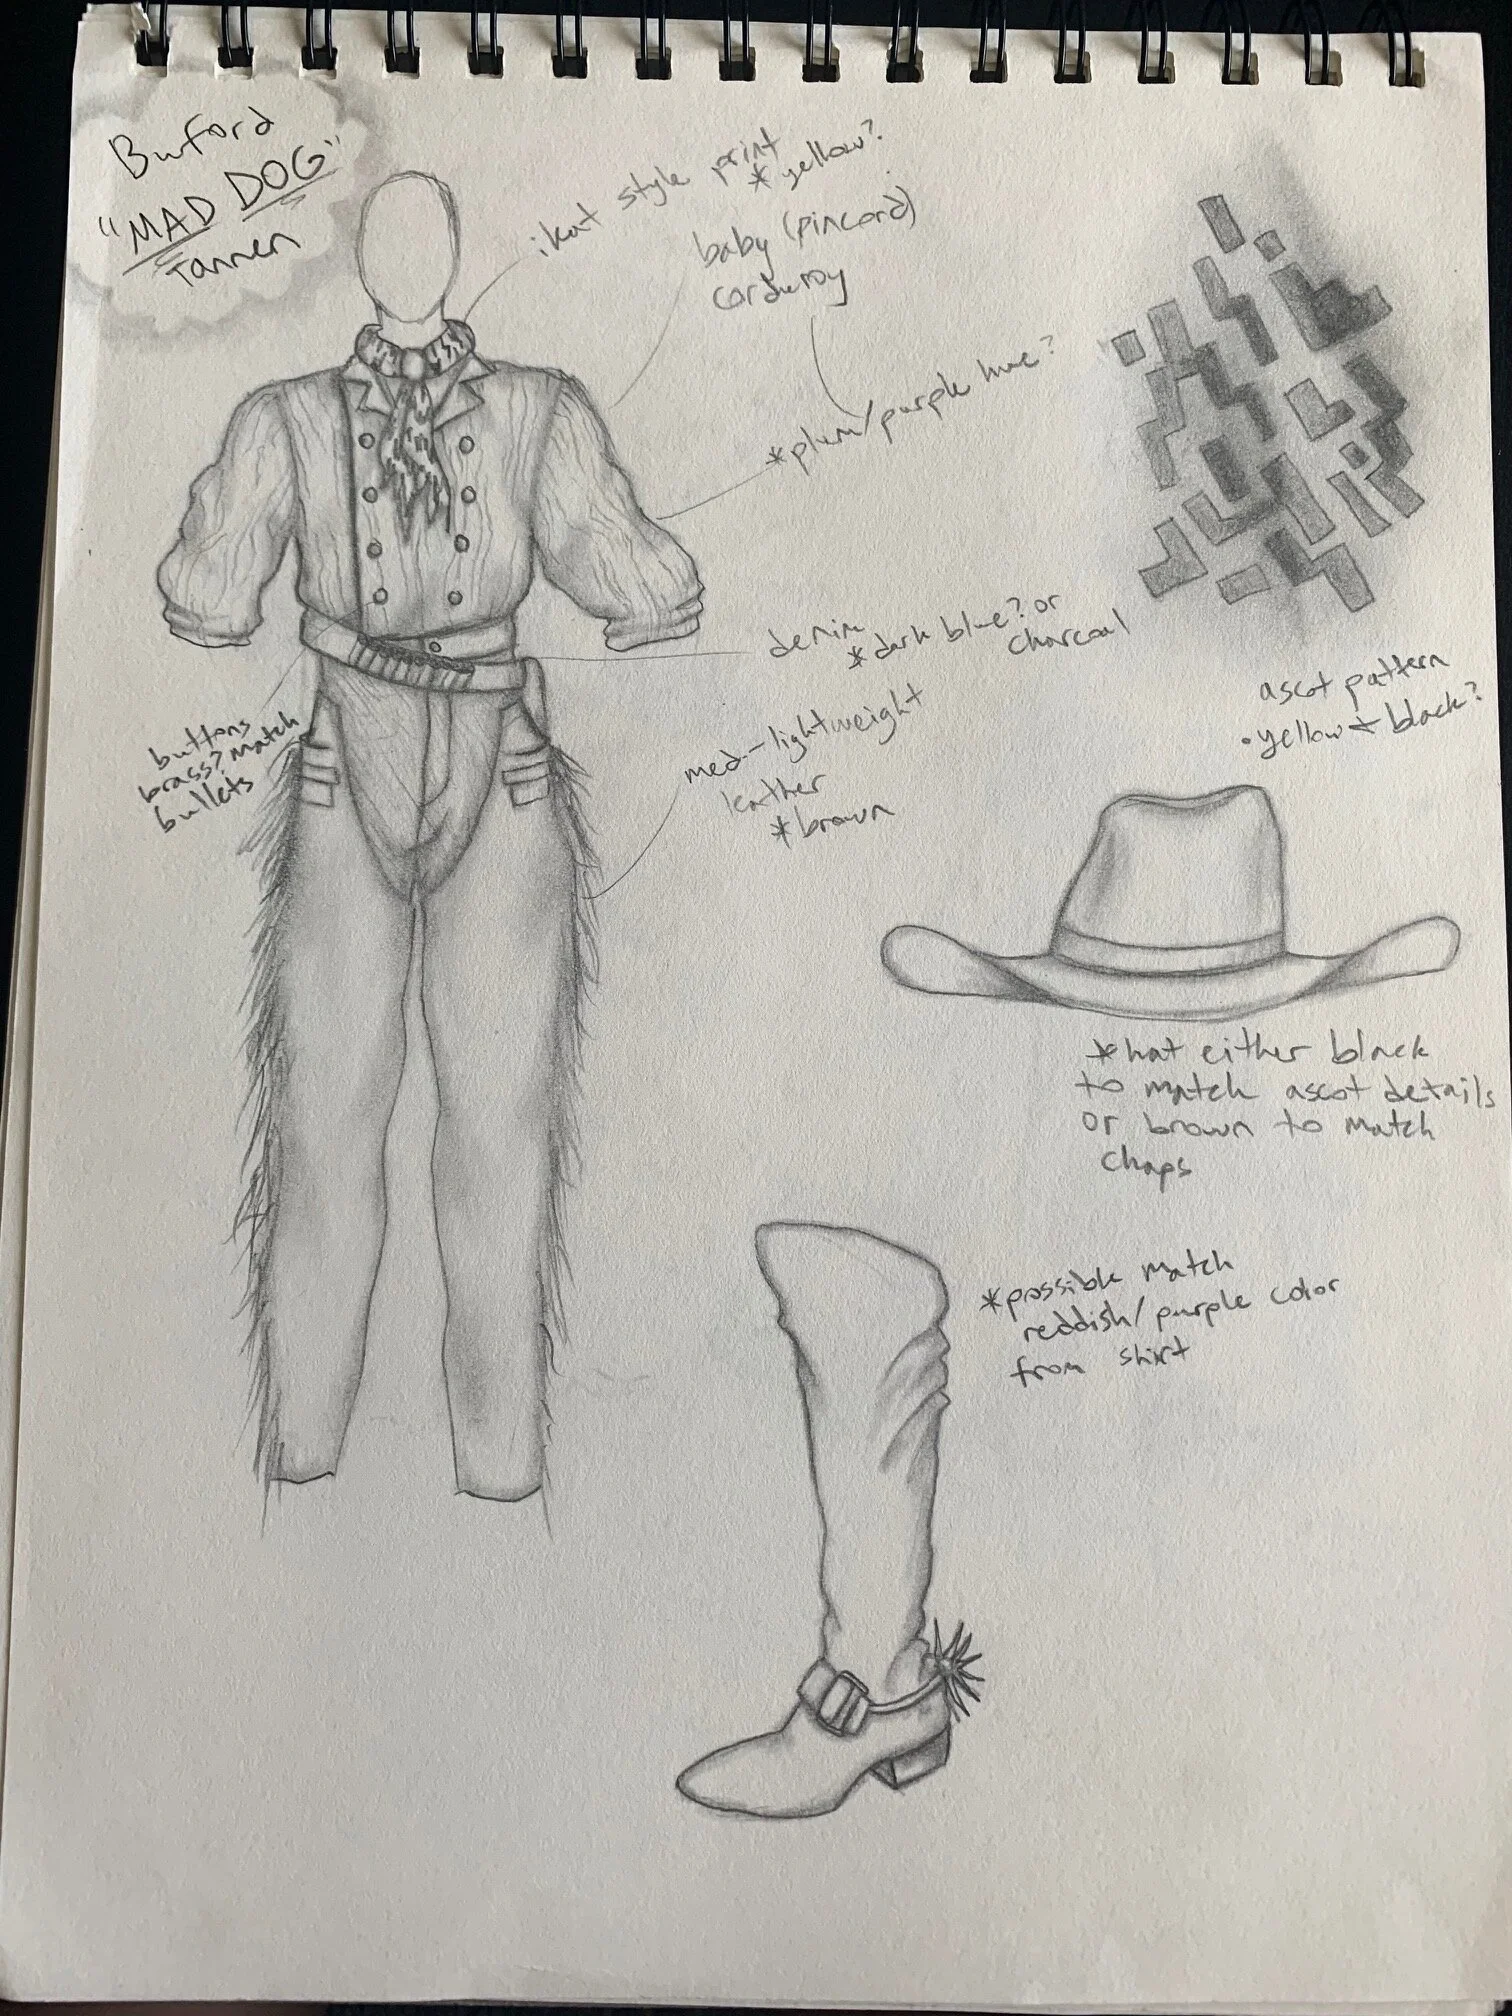 Buford
"MAD DOG"
Tannen
ikat style print
* yellow?
baby (pincord)
corduroy
*plum/purple hue?
denim
*dark blue? or
charcoal
buttons
brass? match
bullets
med-lightweight
leather
*brown
ascot pattern
• yellow + black?
*hat either black
to match ascot details
or brown to match
chaps
*possible match
reddish/purple color
from shirt